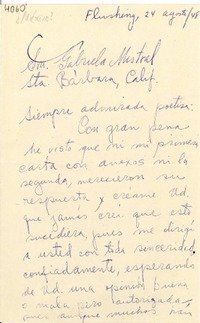 4060
Flushing, 24 agosto/48
Sra. Gabriela Mistral
Sta. Bárbara, Calif.
Siempre admirada poetisa:
Con gran pena
he visto que ni mi primera
carta con anexos ni la
segunda, merecieron su
respuesta y créame Ud.
que jamás creí que esto
sucediera, pues me dirigí
a usted con toda sinceridad,
confiadamente, esperando
de Ud. una opinión buena
o mala pero autorizada,
pues aunque muchos han